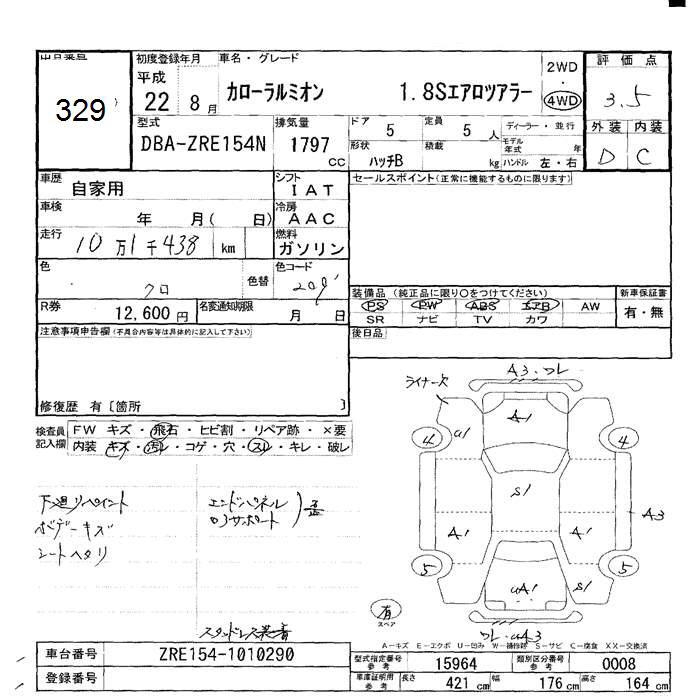 出品番号
329
初度登録年月
平成
22 8月
車名・グレード
カローラルミオン 1.8Sエアロツアラー
2WD
・
4WD
評価点
3.5
外装 内装
D C
型式
DBA-ZRE154N
排気量
1797
CC
ドア 5
定員 5人
形状
ハッチB
積載
kg
ディーラー・並行
モデル
年式
年
ハンドル 左・右
車歴
自家用
シフト
IAT
セールスポイント(正常に機能するものに限ります)
車検
年 月( 日)
冷房
AAC
走行
10万1千438 km
燃料
ガソリン
色
クロ
色替
色コード
209
R券
12,600円
名変通知期限
月 日
装備品(純正品に限り○をつけてください)
PS PW ABS エアB AW
SR ナビ TV カワ
新車保証書
有・無
後日品
注意事項申告欄(不具合内容等は具体的に記入して下さい)
修復歴 有〔箇所 〕
検査員
記入欄
FW キズ・飛石・ヒビ割・リペア跡・×要
内装・キズ・汚レ・コゲ・穴・スレ・キレ・破レ
下廻リペイント
ボデーキズ
シートヘタリ
エンドパネル
ロアサポート
歪
スタッドレス装着
ライナー欠
A3・フレ
A1
U1
4
4
S1
A1
A1
A3
5
5
UA1
S1
有
スペア
フレ・UA3
A-キズ E-エクボ U-凹み W-補修跡 S-サビ C-腐食 XX-交換済
車台番号
ZRE154-1010290
登録番号
型式指定番号
参考
15964
類別区分番号
参考
0008
車庫証明用
参考
長さ 421cm 幅 176cm 高さ 164cm